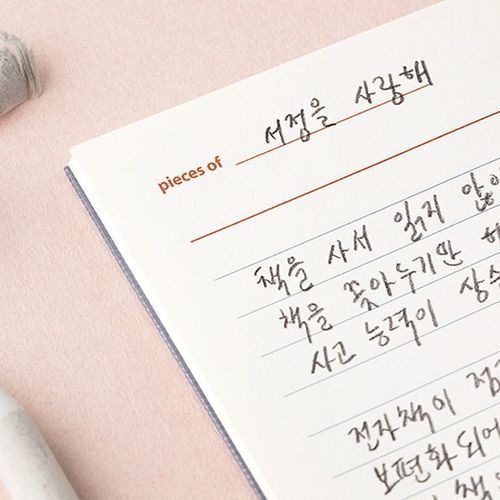 pieces of 서정을 사랑해
책을 사서 읽지 않
책을 꽂아두기만 해
사고 능력이 상
전자책이 점
보편화되어
책